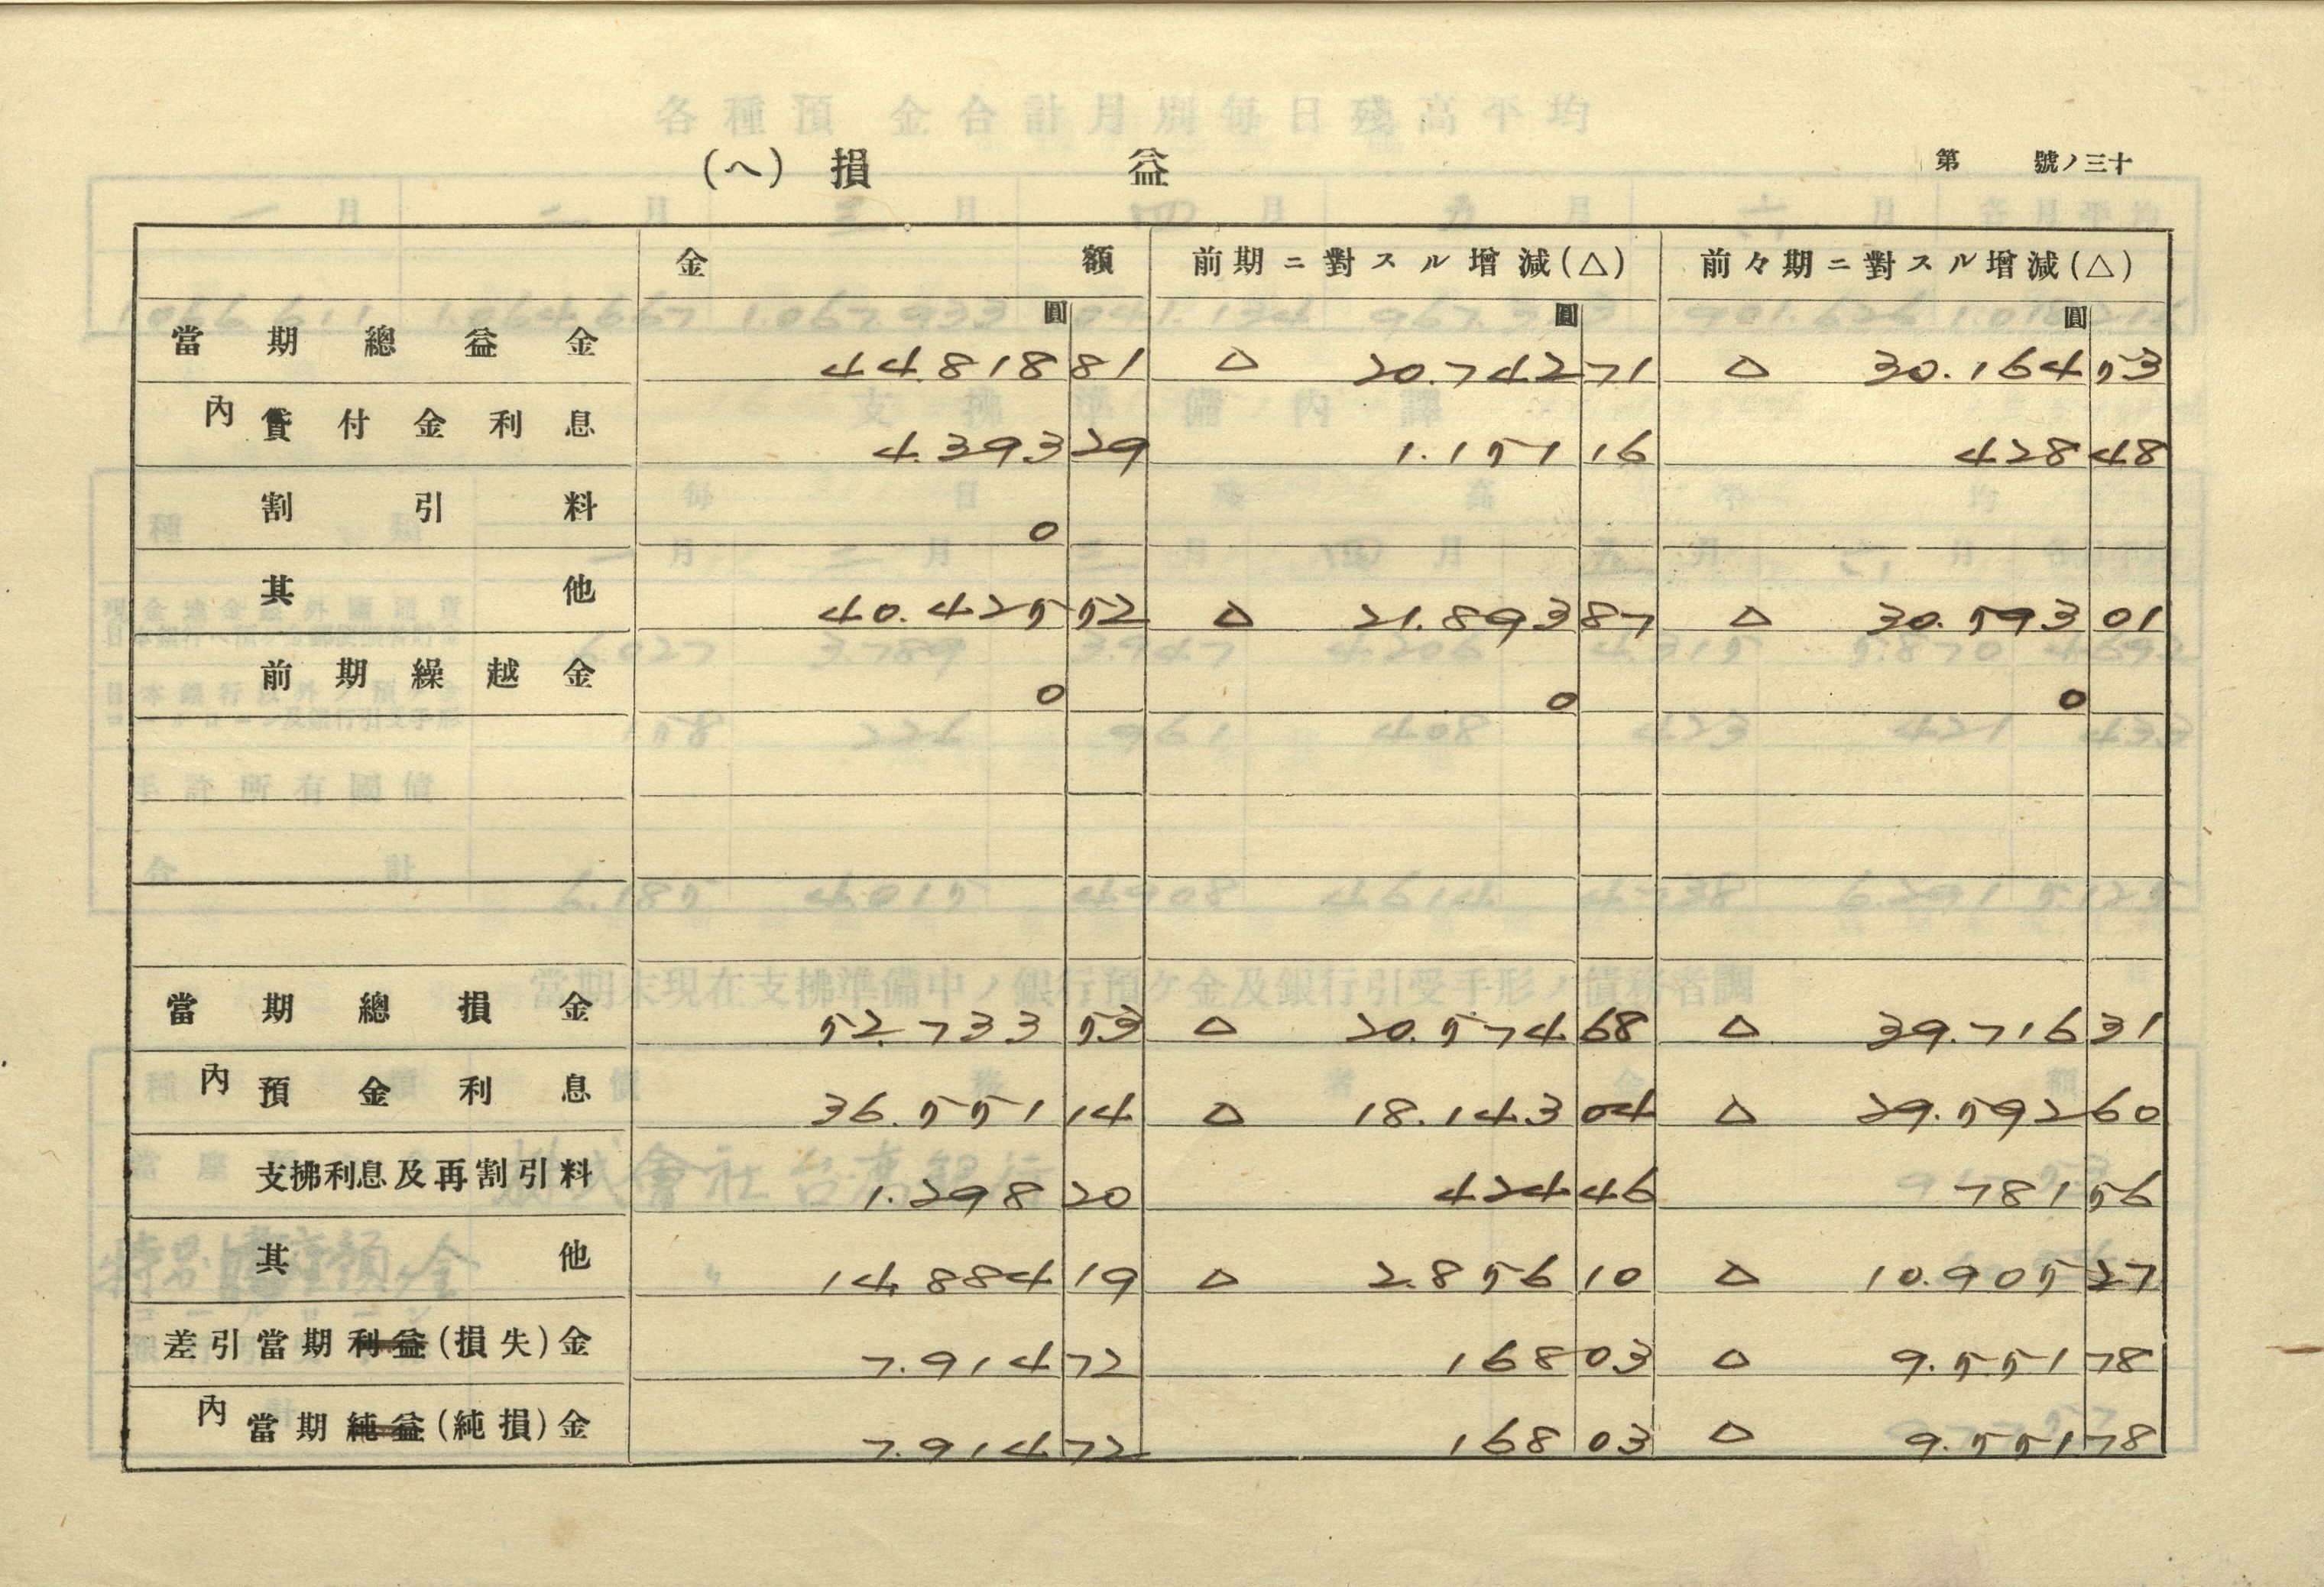 (ヘ) 損益
第 號ノ三十
金額 前期ニ對スル增減(△) 前々期ニ對スル增減(△)
圓 圓 圓
當期總益金 44.818 81 △ 20.742 71 △ 30.164 53
內 貸付金利息 4.393 29 1.151 16 428 48
割引料 0
其他 40.425 52 △ 21.893 87 △ 30.593 01
前期繰越金 0 0 0
當期總損金 52.733 53 △ 20.574 68 △ 39.716 31
內 預金利息 36.551 14 △ 18.143 04 △ 29.592 60
支拂利息及再割引料 1.298 20 424 46 781 56
其他 14.884 19 △ 2.856 10 △ 10.905 27
差引當期利益(損失)金 7.914 72 168 03 △ 9.551 78
內 當期純益(純損)金 7.914 72 168 03 △ 9.551 78